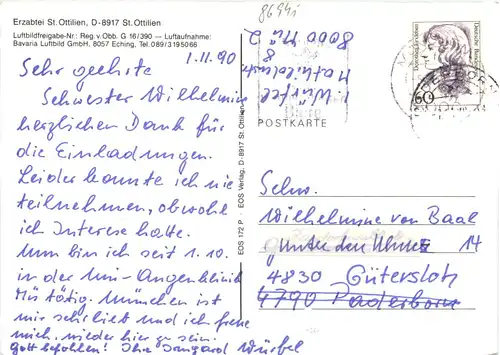 Erzabtei St. Ottilien, D-8917 St. Ottilien
Luftbildfreigabe-Nr.: Reg. v. Obb. G 16/390 — Luftaufnahme:
Bavaria Luftbild GmbH, 8057 Eching, Tel. 089/3195066
1.11.90
Sehr geehrte
Schwester Wilhelmine
herzlichen Dank für
die Einladungen.
Leider konnte ich nie
teilnehmen, obwohl
ich Interese hatte.
Nun bin ich seit 1.10.
in der Uni-Augenklinik
Mü tätig. München ist
mir sehr lieb und ich freue
mich, wieder hier zu sein.
Gott befohlen! Ihre Irmgard Würfel
EOS 172 P · EOS Verlag, D-8917 St. Ottilien
8694i
I. Würfel
Mathildenstr.
8
8000 Mü 2
POSTKARTE
60
Schw.
Wilhelmine von Baal
Unter den Ulmen 14
4830 Gütersloh
4790 Paderborn